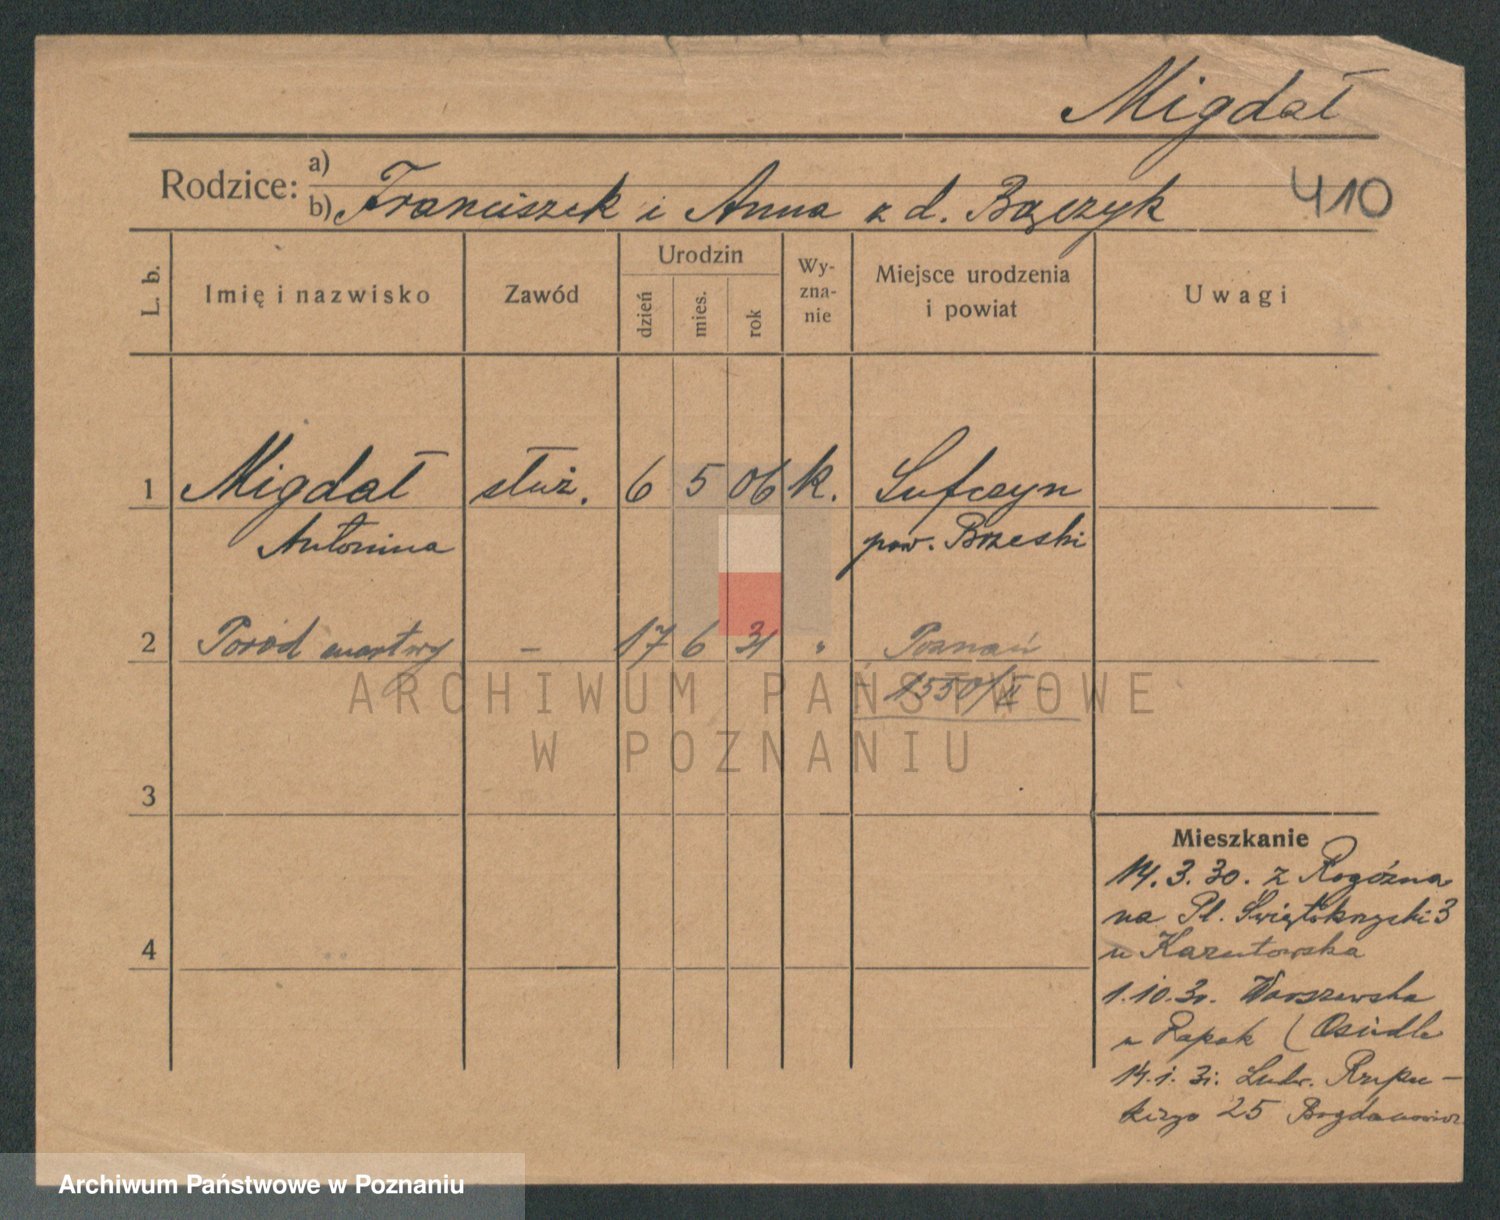 Migdał
Rodzice:
a)
b) Franciszek i Anna z d. Bączyk
410
L. b.
Imię i nazwisko
Zawód
Urodzin
dzień
mies.
rok
Wy-
zna-
nie
Miejsce urodzenia
i powiat
Uwagi
1 Migdał służ. 6 5 06 k. Sufczyn
Antonina pow. Brzeski
2 Poród martwy – 17 6 31 " Poznań
1550/II
ARCHIWUM PAŃSTWOWE
W POZNANIU
3
4
Mieszkanie
14.3.30. z Rogóźna
na Pl. Świętokrzyski 3
u
1.10.30. Warszewska
u Rapak (Osiedle
14.1.31. Ludw. Rzepe-
kiego 25
Archiwum Państwowe w Poznaniu